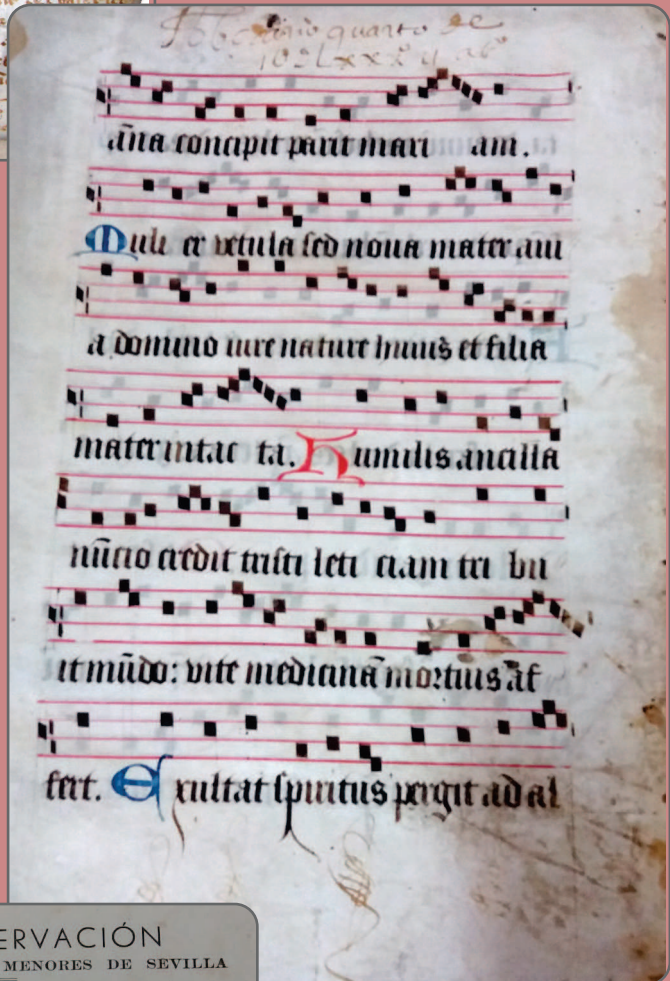 quarto de
āna concipit parit mari am.
Muli er vetula sed noua mater aui
a domino iure nature huius et filia
mater intac ta. Humilis ancilla
nūcio credit tristi leti ciam tri bu
it mūdo: vite medicinā mortuis āf
fert. Exultat spiritus pergit ad al
ERVACIÓN
MENORES DE SEVILLA